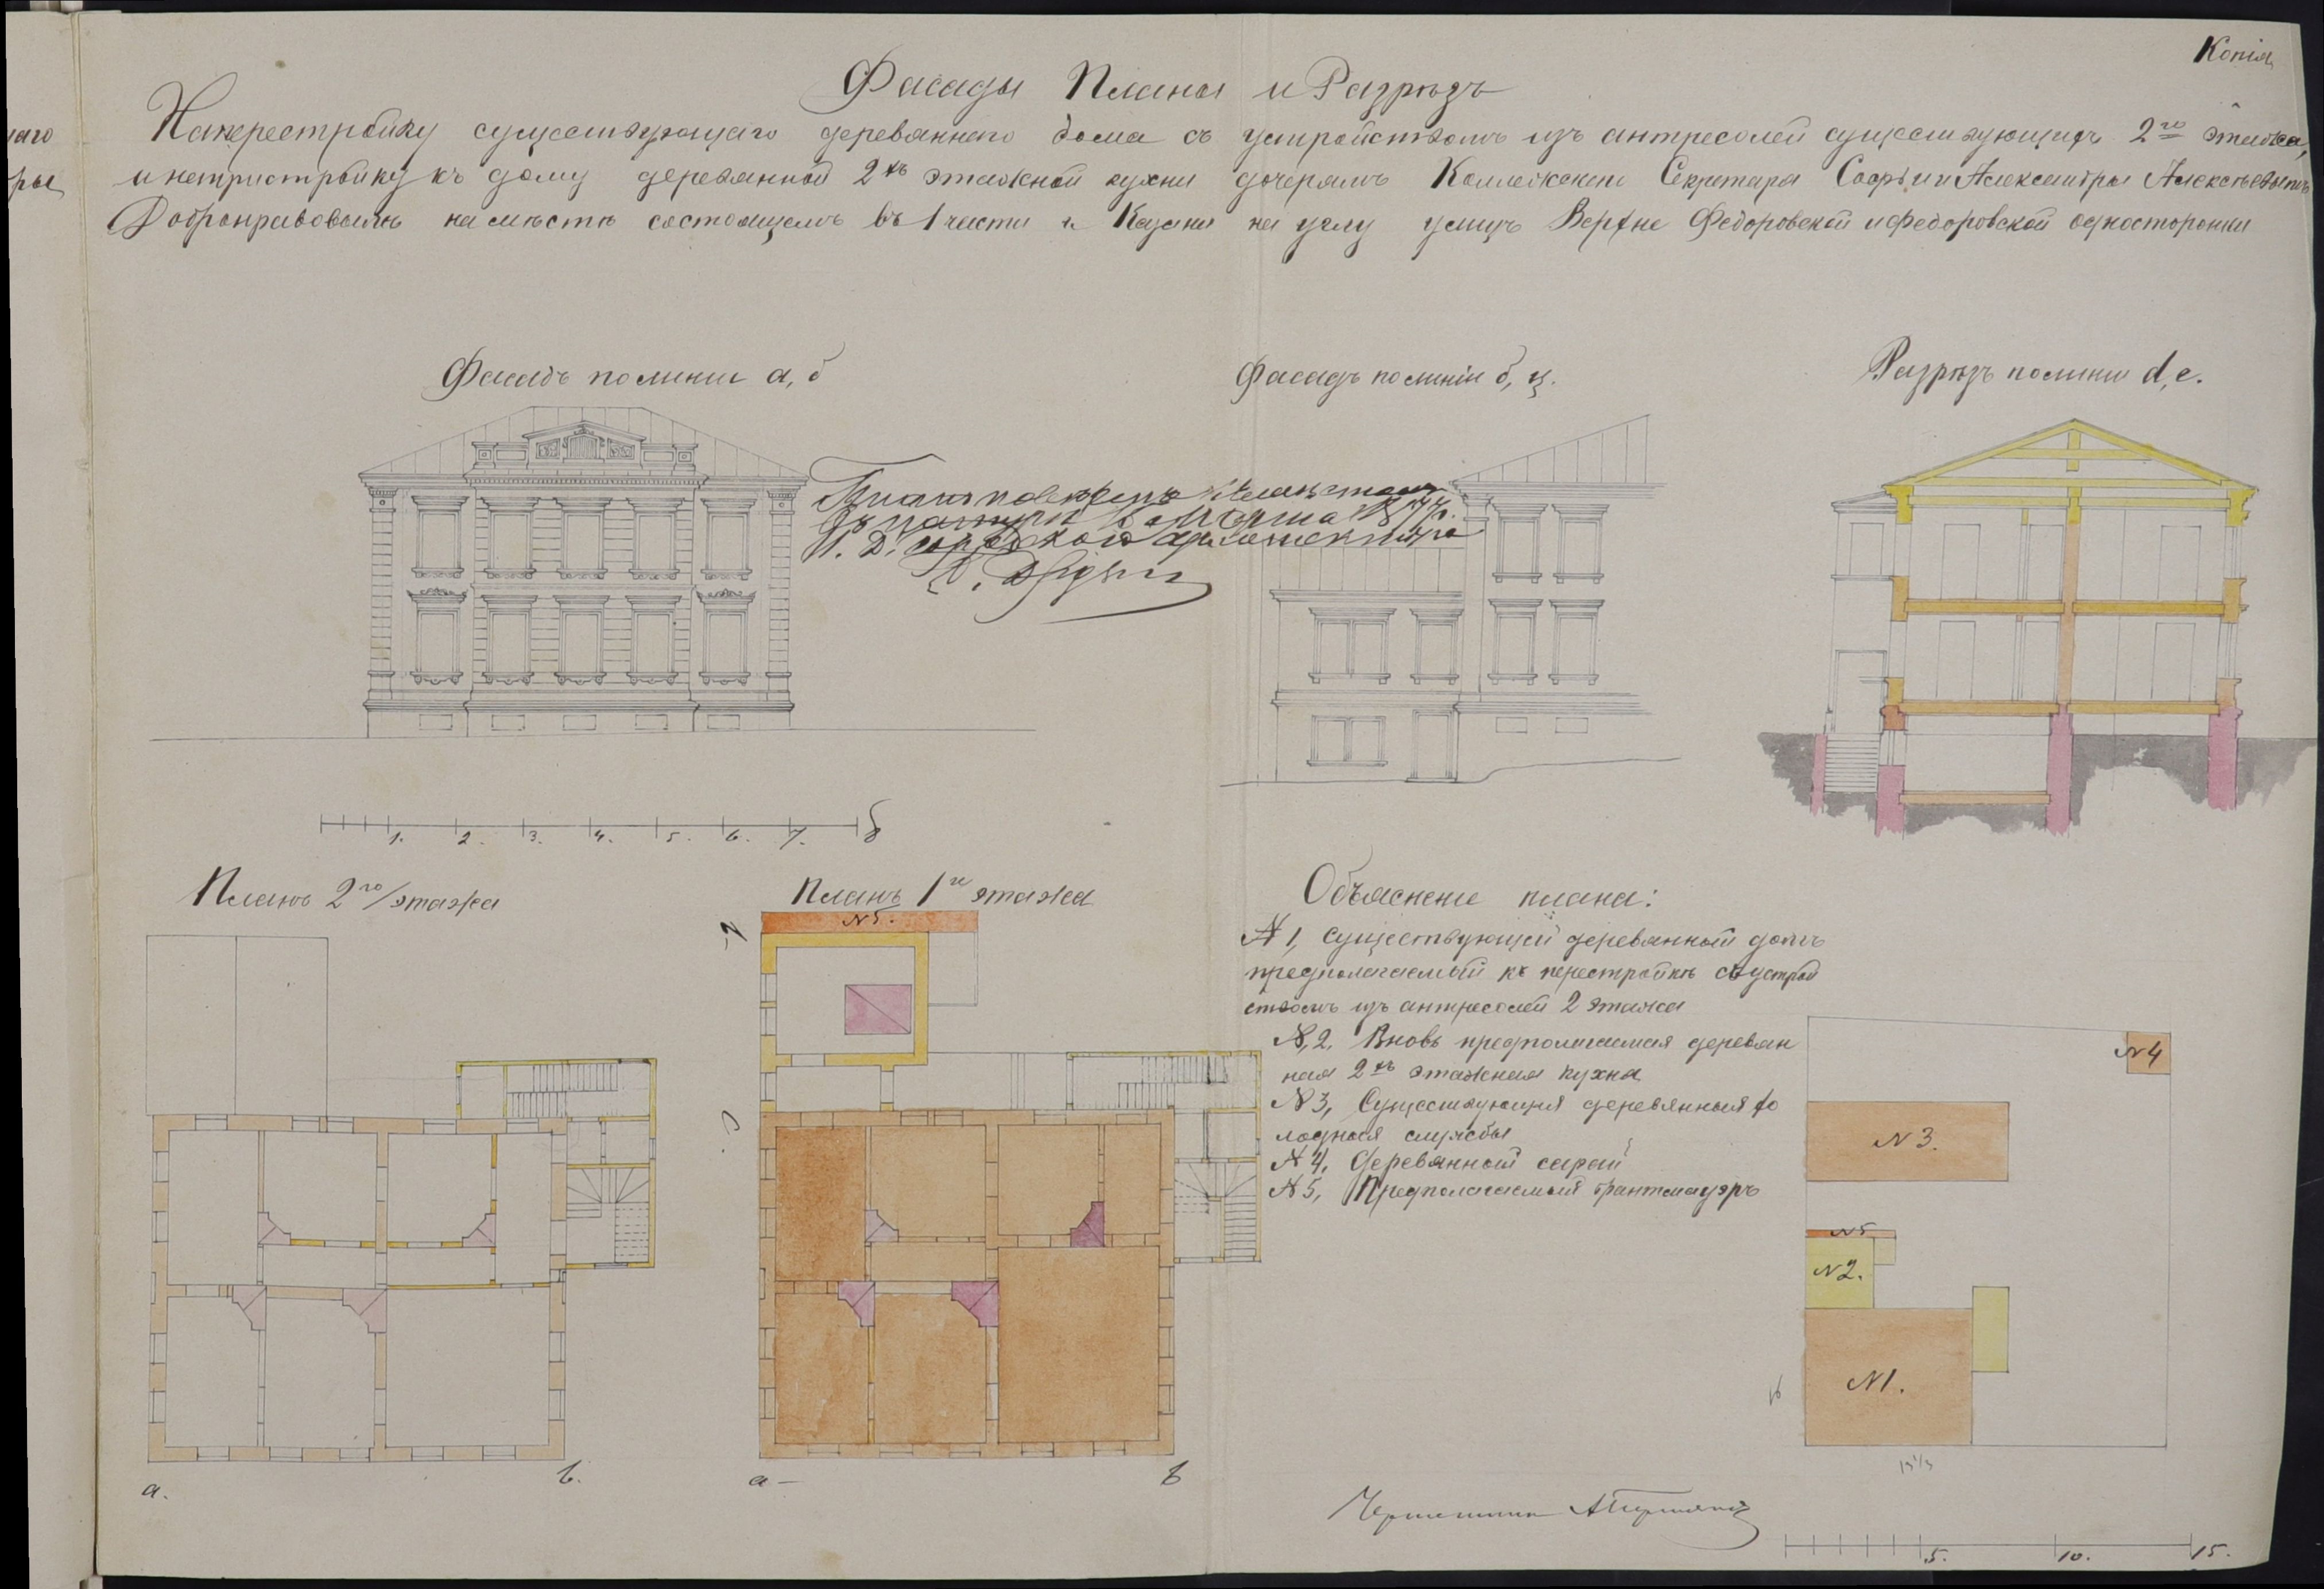 Копія
Фасады Планы и Разрѣзъ
На перестройку существующаго деревяннаго дома съ устройствомъ изъ антресолей существующихъ 2го этажа,
и на пристройку къ дому деревянной 2хъ этажной кухни дочерямъ Коллежскаго Секретаря Софьи и Александры Алексѣевымъ
Добронравовымъ на мѣстѣ состоящемъ въ 1 части г. Казани на углу улицъ Верхне Федоровской и Федоровской односторонки
наго
ры
Фасадъ по линіи а, б
Фасадъ по линіи б, ц.
Разрѣзъ по линіи d, e.
8 Августа
И. Д. городского архитектора
1. 2. 3. 4. 5. 6. 7. 8
Планъ 2го этажа
Планъ 1го этажа
N 5.
а.
в.
а
в
Объясненіе плана:
N 1, Существующій деревянный домъ
предполагаемый къ перестройкѣ съ устрой
ствомъ изъ антресолей 2 этажа
N, 2, Вновь предполагаемая деревян
ная 2хъ этажная кухня
N 3, Существующія деревянныя хо
лодныя службы
N 4, Деревянный сарай
N 5, Предполагаемый брантмауэръ
N4
N 3.
N5
N2.
N1.
Чертежникъ
5. 10. 15.